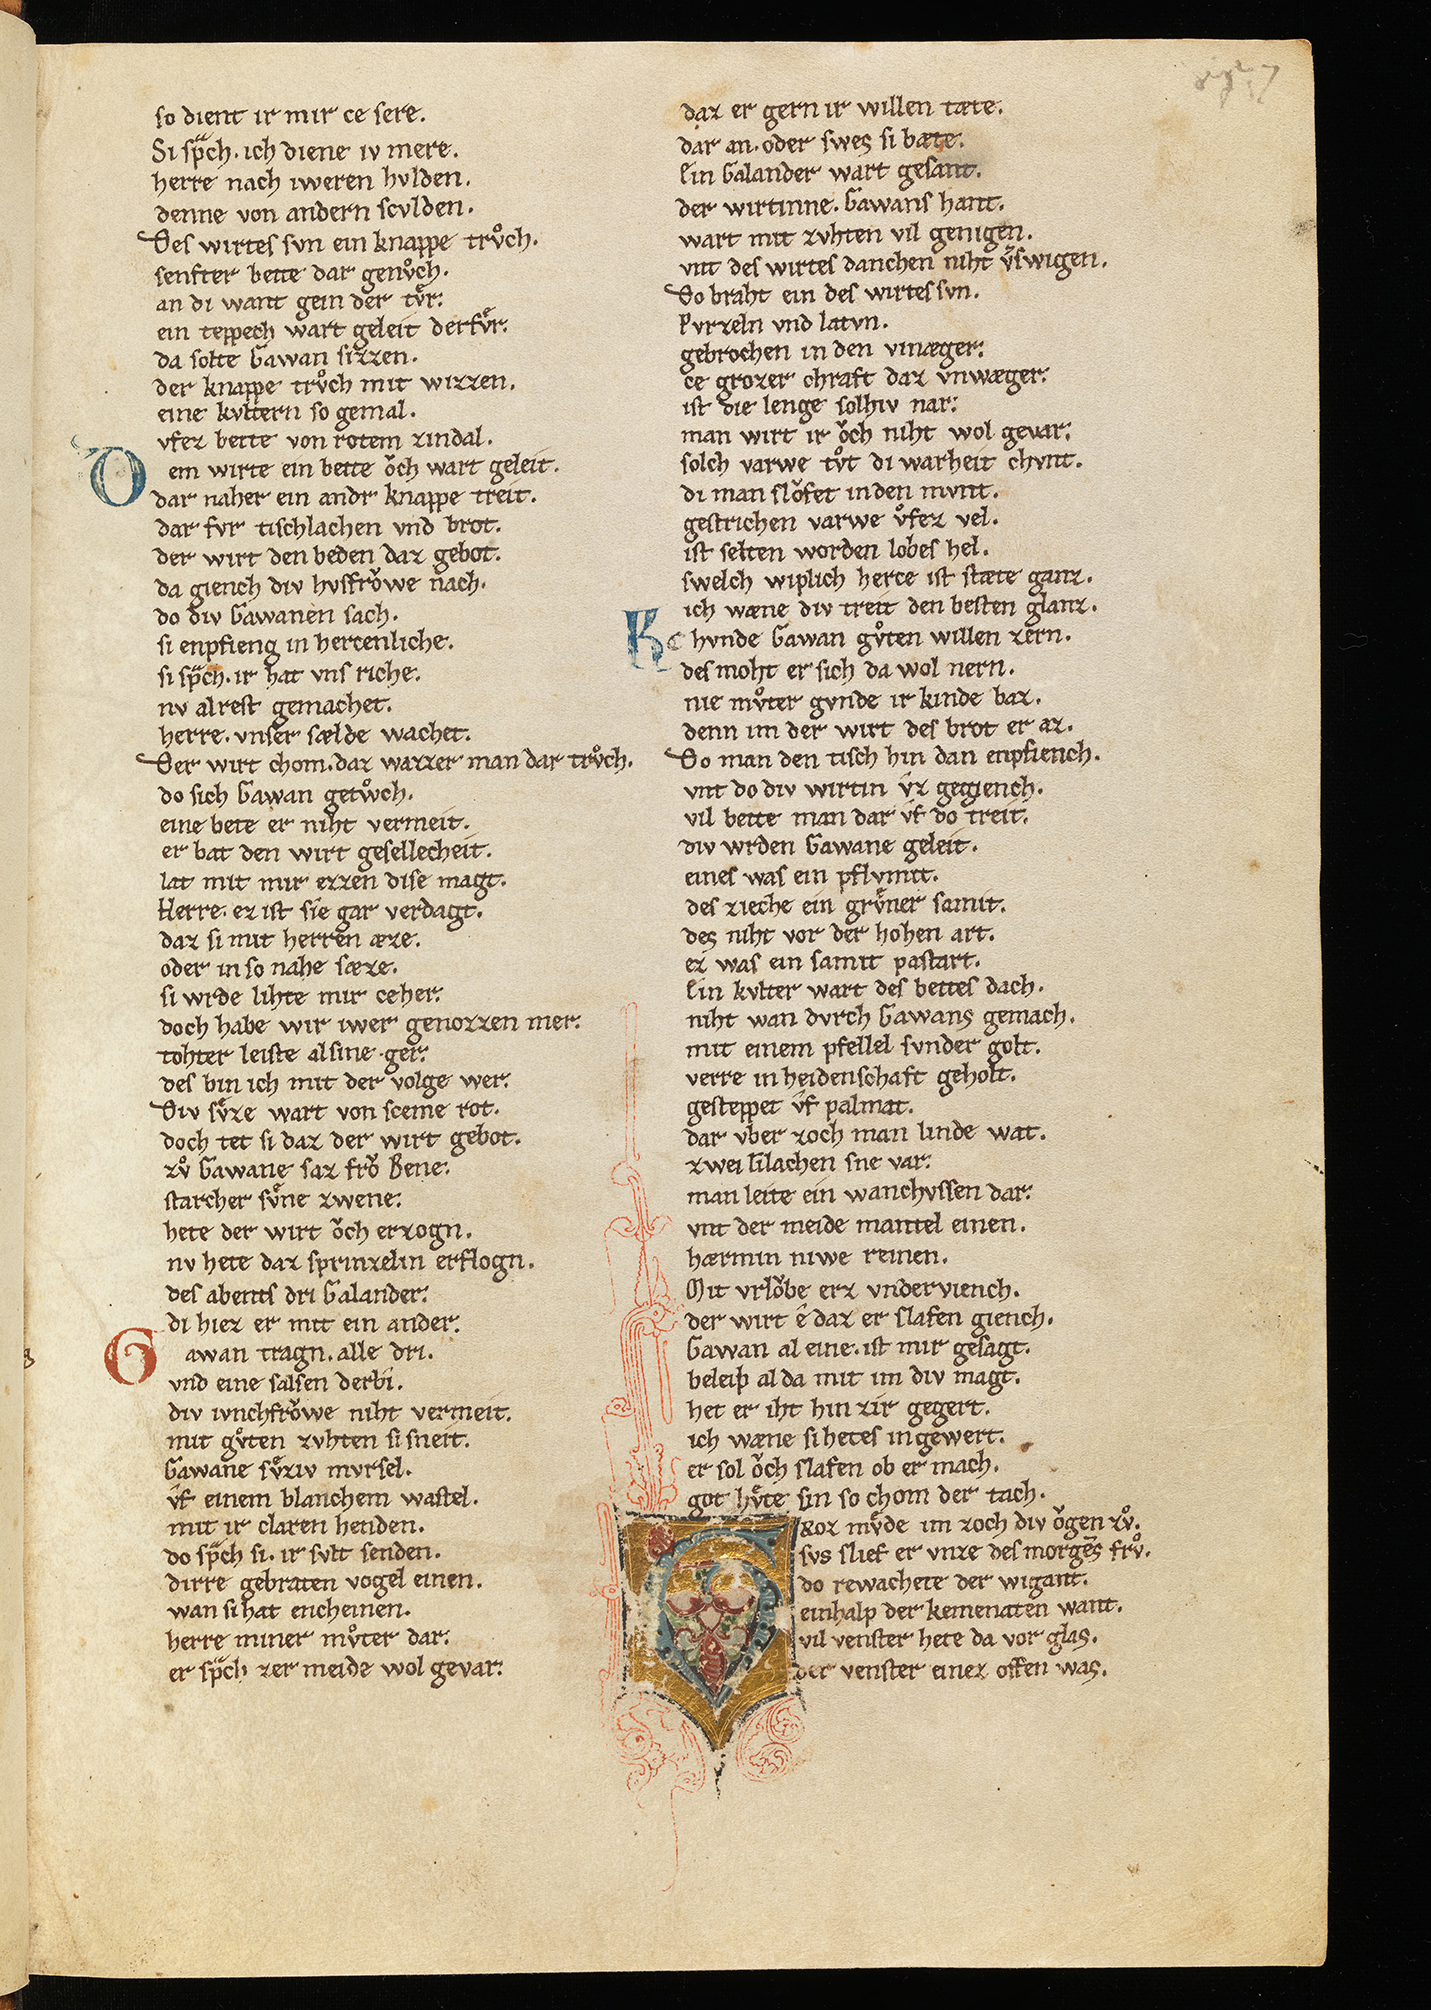 so dient ir mir ce sere.
Si sp̃ch. ich diene iv mere.
herre nach iweren hvlden.
denne von andern scvlden.
Des wirtes svn ein knappe trvͦch.
senfter bette dar genvͦch.
an di want gein der tvͤr.
ein teppech wart geleit derfvͤr.
da solte Gawan sizzen.
der knappe trvͦch mit wizzen.
eine kvltern so gemal.
vfez bette von rotem zindal.
Dem wirte ein bette oͮch wart geleit.
dar naher ein andr knappe treit.
dar fvr tischlachen vnd brot.
der wirt den beden daz gebot.
da giench div hvsfroͮwe nach.
do div Gawanen sach.
si enpfieng in hercenliche.
si sp̃ch. ir hat vns riche.
nv alrest gemachet.
herre. vnser sælde wachet.
Der wirt chom. daz wazzer man dar trvͦch.
do sich Gawan getwͦch.
eine bete er niht vermeit.
er bat den wirt gesellecheit.
lat mit mir ezzen dise magt.
Herre. ez ist sie gar verdagt.
daz si mit herren æze.
oder in so nahe sæze.
si wrde lihte mir ceher.
doch habe wir iwer genozzen mer.
tohter leiste al sine ger.
des bin ich mit der volge wer.
Div svͤze wart von sceme rot.
doch tet si daz der wirt gebot.
zvͦ Gawane saz froͮ Bene.
starcher svͤne zwene.
hete der wirt oͮch erzogn.
nv hete daz sprinzelin erflogn.
des abents dri Galander.
di hiez er mit ein ander.
Gawan tragn. alle dri.
vnd eine salsen derbi.
div ivnchfroͮwe niht vermeit.
mit gvͦten zvhten si sneit.
Gawane svͤziv mvrsel.
vf einem blanchem wastel.
mit ir claren henden.
do sp̃ch si. ir svlt senden.
dirre gebraten vogel einen.
wan si hat encheinen.
herre miner mvͦter dar.
er sp̃ch zer meide wol gevar.
daz er gern ir willen tæte.
dar an. oder swes si bæte.
Ein Galander wart gesant.
der wirtinne. Gawans hant.
wart mit zvhten vil genigen.
vnt des wirtes danchen niht v̾swigen.
Do braht ein des wirtes svn.
Pvrzeln vnd latvn.
gebrochen in den vinæger.
ce grozer chraft daz vnwæger.
ist die lenge solhiv nar.
man wirt ir oͮch niht wol gevar.
solch varwe tvͦt di warheit chvnt.
di man sloͮfet in den mvnt.
gestrichen varwe vͦfez vel.
ist selten worden lobes hel.
swelch wiplich herce ist stæte ganz.
ich wæne div treit den besten glanz.
Kchvnde Gawan gvͦten willen zern.
des moht er sich da wol nern.
nie mvͦter gvnde ir kinde baz.
denn im der wirt des brot er az.
Do man den tisch hin dan enpfiench.
vnt do div wirtin vͦz gegiench.
vil bette man dar vf do treit.
div wrden Gawane geleit.
eines was ein pflvmit.
des zieche ein grvͤner samit.
des niht vor der hohen art.
ez was ein samit pastart.
Ein kvlter wart des bettes dach.
niht wan dvrch Gawans gemach.
mit einem pfellel svnder golt.
verre in heidenschaft geholt.
gesteppet vf palmat.
dar vber zoch man linde wat.
zwei lilachen sne var.
man leite ein wanchvssen dar.
vnt der meide mantel einen.
hærmin niwe reinen.
Mit vrloͮbe erz vnderviench.
der wirt ê daz er slafen giench.
Gawan al eine. ist mir gesagt.
beleip al da mit im div magt.
het er iht hin zir gegert.
ich wæne si hetes in gewert.
er sol oͮch slafen ob er mach.
got hvͤte sin so chom der tach.
Groz mvͤde im zoch div oͮgen zvͦ.
svs slief er vnze des morgēs frvͦ.
do rewachete der wigant.
einhalp der kemenaten want.
vil venster hete da vor glas.
der venster einez offen was.